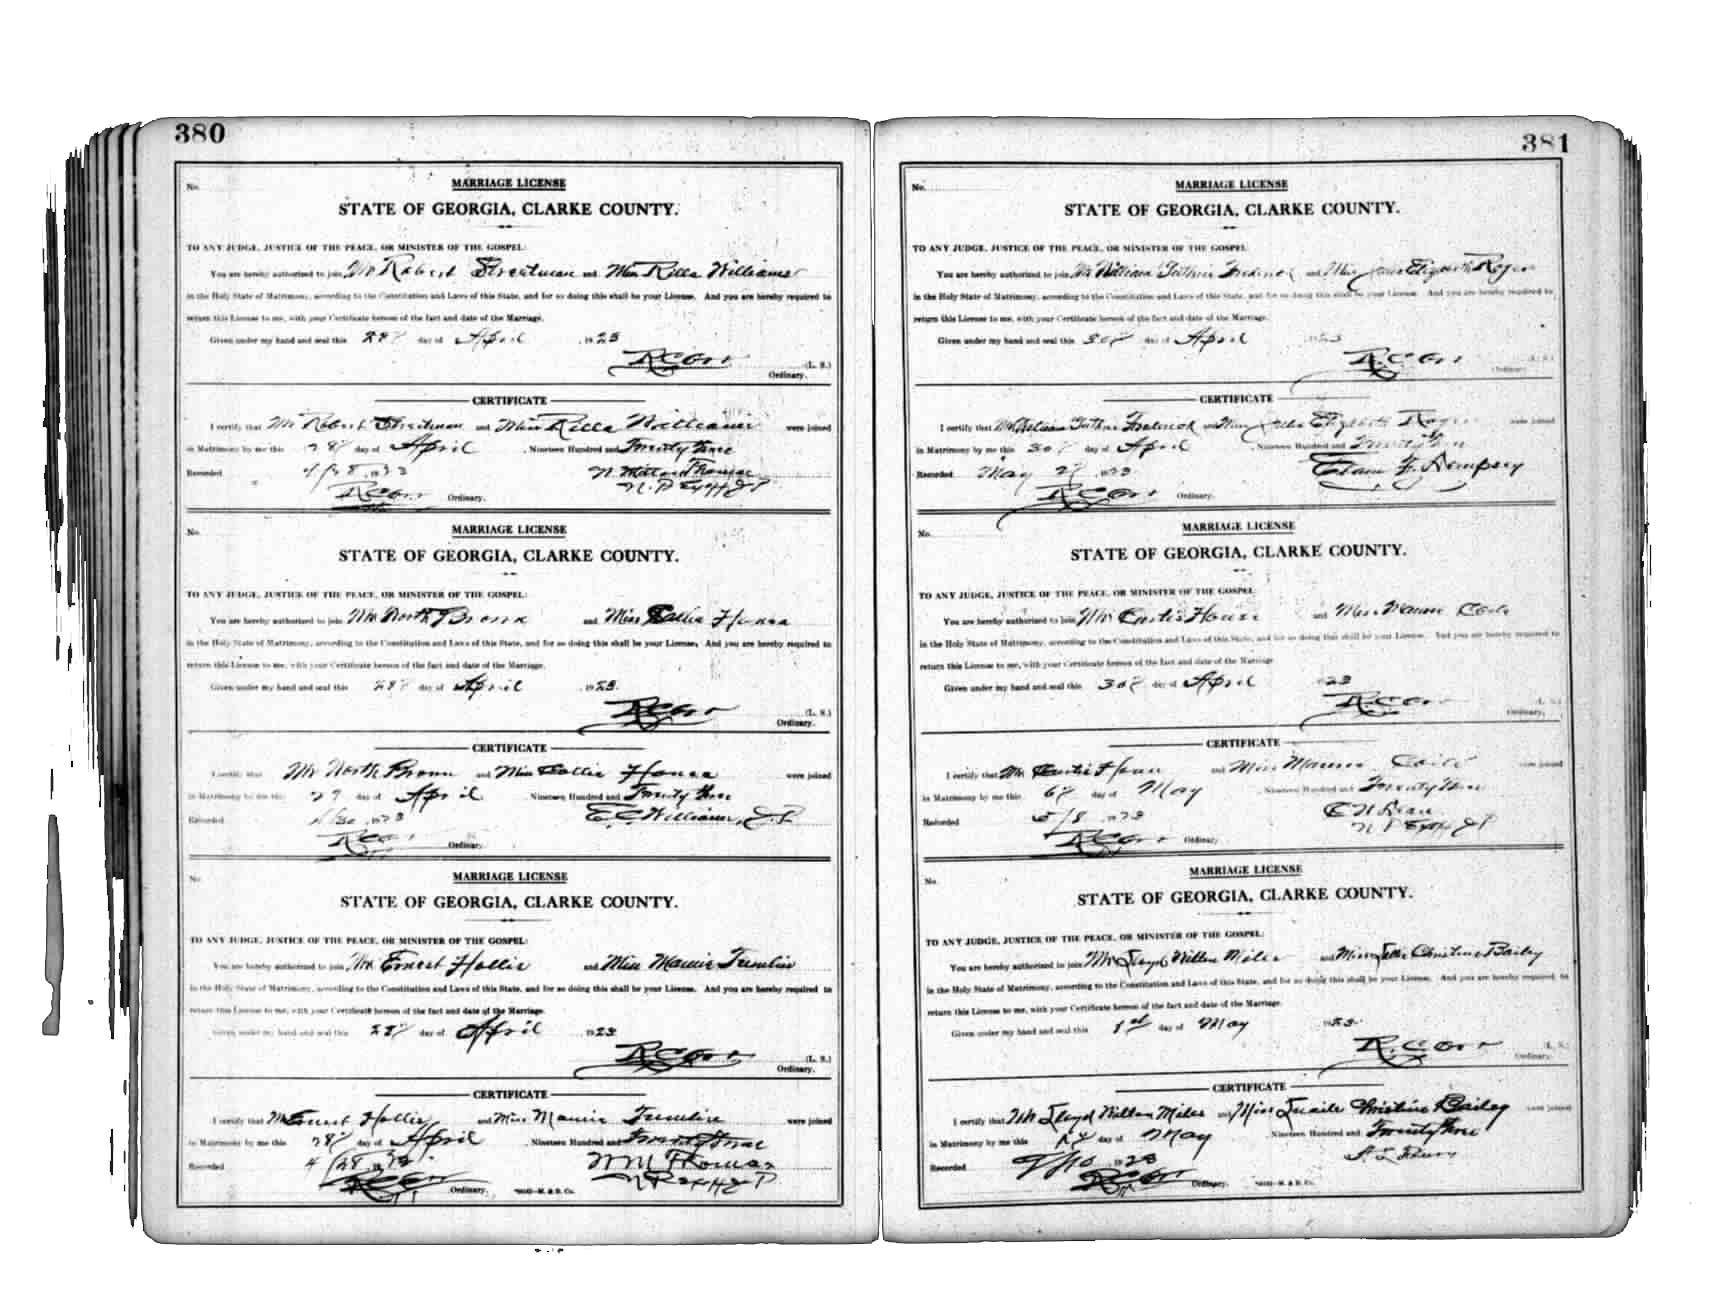 380
No.
MARRIAGE LICENSE
STATE OF GEORGIA, CLARKE COUNTY.
TO ANY JUDGE, JUSTICE OF THE PEACE, OR MINISTER OF THE GOSPEL:
You are hereby authorized to join Mr Robert Streetman and Miss Rilla Williams
in the Holy State of Matrimony, according to the Constitution and Laws of this State, and for so doing this shall be your License. And you are hereby required to
return this License to me, with your Certificate hereon of the fact and date of the Marriage.
Given under my hand and seal this 28th day of April 1923
R C Orr (L. S.)
Ordinary.
CERTIFICATE
I certify that Mr Robert Streetman and Miss Rilla Williams were joined
in Matrimony by me this 28th day of April, Nineteen Hundred and Twenty three
Recorded 4/28 1923 Thomas
R C Orr Ordinary. N. P. Ex H J P
No.
MARRIAGE LICENSE
STATE OF GEORGIA, CLARKE COUNTY.
TO ANY JUDGE, JUSTICE OF THE PEACE, OR MINISTER OF THE GOSPEL:
You are hereby authorized to join Mr North Brown and Miss Callie
in the Holy State of Matrimony, according to the Constitution and Laws of this State, and for so doing this shall be your License, And you are hereby required to
return this License to me, with your Certificate hereon of the fact and date of the Marriage.
Given under my hand and seal this 28th day of April 1923.
R C Orr (L. S.)
Ordinary.
CERTIFICATE
I certify that Mr North Brown and Miss Callie were joined
in Matrimony by me this 29 day of April, Nineteen Hundred and Twenty three
Recorded 4/30 1923 E C Williams, J. P.
R C Orr Ordinary.
No.
MARRIAGE LICENSE
STATE OF GEORGIA, CLARKE COUNTY.
TO ANY JUDGE, JUSTICE OF THE PEACE, OR MINISTER OF THE GOSPEL:
You are hereby authorized to join Mr Ernest Hollis and Miss Mamie Tumlin
in the Holy State of Matrimony, according to the Constitution and Laws of this State, and for so doing this shall be your License. And you are hereby required to
return this License to me, with your Certificate hereon of the fact and date of the Marriage.
Given under my hand and seal this 28th day of April 1923
R C Orr (L. S.)
Ordinary.
CERTIFICATE
I certify that Mr Ernest Hollis and Miss Mamie Tumlin were joined
in Matrimony by me this 28th day of April, Nineteen Hundred and Twenty three
Recorded 4/28 1923. W M Thomas
R C Orr Ordinary. N P Ex H J P
381
No.
MARRIAGE LICENSE
STATE OF GEORGIA, CLARKE COUNTY.
TO ANY JUDGE, JUSTICE OF THE PEACE, OR MINISTER OF THE GOSPEL
You are hereby authorized to join Mr William Luther Frederick and Miss Elizabeth
in the Holy State of Matrimony, according to the Constitution and Laws of this State, and for so doing this shall be your License. And you are hereby required to
return this License to me, with your Certificate hereon of the fact and date of the Marriage.
Given under my hand and seal this 30th day of April 1923
R. C Orr (L. S.)
Ordinary.
CERTIFICATE
I certify that Mr William Luther Frederick and Miss Elizabeth were joined
in Matrimony by me this 30th day of April, Nineteen Hundred and Twenty three
Recorded May 2nd 1923 Elam F. Dempsey
R C Orr Ordinary.
No.
MARRIAGE LICENSE
STATE OF GEORGIA, CLARKE COUNTY.
TO ANY JUDGE, JUSTICE OF THE PEACE, OR MINISTER OF THE GOSPEL
You are hereby authorized to join Mr Curtis House and Miss Maurine Coile
in the Holy State of Matrimony, according to the Constitution and Laws of this State, and for so doing this shall be your License. And you are hereby required to
return this License to me, with your Certificate hereon of the fact and date of the Marriage
Given under my hand and seal this 30th day of April 1923
R. C Orr (L. S.)
Ordinary.
CERTIFICATE
I certify that Mr Curtis House and Miss Maurine Coile were joined
in Matrimony by me this 6th day of May, Nineteen Hundred and Twenty three
Recorded 5/8 1923 C N
R C Orr Ordinary. N P Ex H J P
No.
MARRIAGE LICENSE
STATE OF GEORGIA, CLARKE COUNTY.
TO ANY JUDGE, JUSTICE OF THE PEACE, OR MINISTER OF THE GOSPEL:
You are hereby authorized to join Mr Lloyd Miles and Miss Christine Bailey
in the Holy State of Matrimony, according to the Constitution and Laws of this State, and for so doing this shall be your License. And you are hereby required, to
return this License to me, with your Certificate hereon of the fact and date of the Marriage.
Given under my hand and seal this 1st day of May 1923.
R. C Orr (L. S.)
Ordinary.
CERTIFICATE
I certify that Mr Lloyd Miles and Miss Christine Bailey were joined
in Matrimony by me this day of May, Nineteen Hundred and Twenty three
Recorded 1923
R C Orr Ordinary.